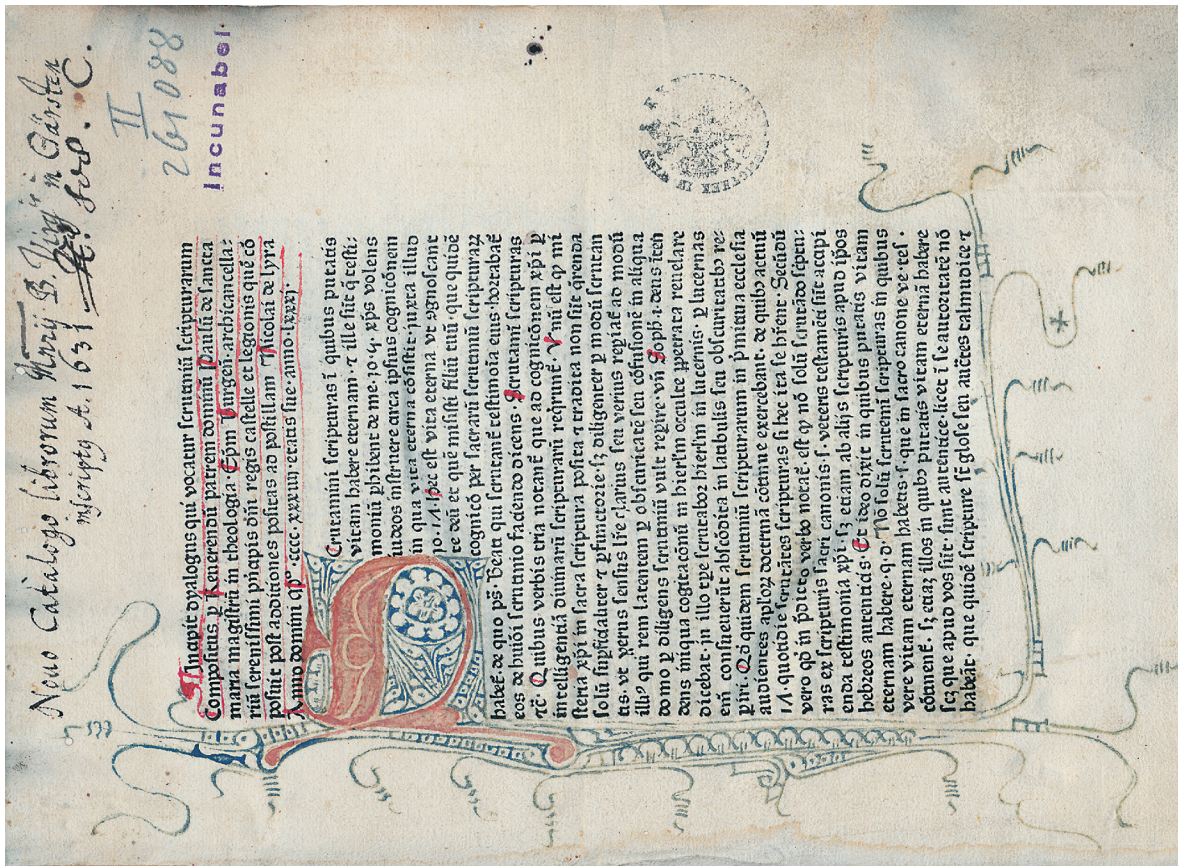 Nouo Catalogo librorum Mnrij B. Virg. in Gärsten
inscripty A. 1631 C.
II
261088
Incunabel
Incipit dyalogus qui vocatur scrutiniũ scripturarum
Compositus p Reuerendũ patrem dominũ Paulũ de sancta
maria magistrũ in theologia. Ep̃m Burgeñ. archicancella:
riũ serenissimi pñcipis dñi regis castelle et legionis quẽ cõ
posuit post additiones positas ad postillam Nicolai de lyra
Anno domini Mº. cccc. xxxiiij. etatis sue. anno. lxxxj.
SCrutamini scripturas ĩ quibus putatis
vitam habere eternam. ⁊ ille sũt q̃ testi:
moniũ phibent de me. io. 5. xp̃s volens
iudeos instruere circa ipsius cognicõnem
in qua vita eterna cõsistit. iuxta illud
io. 17. hec est vita eterna vt ꝯgnoscant
te deũ et quẽ misisti filiũ tuũ que quidẽ
cognicõ per sacrarũ scrutiniũ scripturaꝝ
habet̃. de quo ps̃. Beati qui scrutant̃ testimoĩa eius. hortabat̃
eos de huiõi scrutinio faciendo dicens. Scrutamĩ scripturas
⁊c̃ Quibus verbis tria notant̃ que ad cognicõnem xp̃i ꝑ
intelligentiã diuinarũ scripturarũ reqrunt̃. Vnũ est qꝫ mi
steria xp̃i in sacra scriptura posita ⁊ tradita non sũt q̃renda
solũ supficialiter ⁊ pfunctorie. sꝫ diligenter ꝑ modũ scrutan
tis. vt verus sensus lr̃e clarius seu verius repiat̃ ad modũ
illiꝰ qui rem latentem ꝑ obscuritatẽ seu cõfusionẽ in aliqua
domo ꝑ diligens scrutiniũ vult repire. vñ Soph. i. deus itẽ
dens iniqua cogitacõnũ in hierl̃m occulte ⁊ ppetrata reuelare
dicebat. in illo tp̃e scrutaboꝛ hierl̃m in lucernis. ꝑ lucernas
em̃ consueuerũt abscõdita in latibulis seu obscuritatibꝰ re:
piri. Qd̃ quidem scrutiniũ scripturarum in p̃mitiua ecclesia
audientes aplõꝝ doctrinã cõtinue exercebant. de quibꝰ actuũ
17 quotidie scrutãtes scripturas si hec ita se hr̃ent. Secũdũ
vero qd̃ in p̃dicto verbo notat̃. est qꝫ nõ solũ scrutãdo scptu:
ras ex scripturis sacri canonis. s. veteris testamẽti sũt accipi
enda testimonia xp̃i sꝫ etiam ab alijs scripturis apud ip̃os
hebreos autenticis Et ideo dixit in quibus putatis vitam
eternam habere. q.d. Nõ solũ scrutemĩ scripturas in quibus
vere vitam eternam habetis. s. que in sacro canone ve. tes.
cõtinent̃. sꝫ etiaꝫ illos in quibꝰ putatis vitam eternã habere
sꝫ que apud vos sũt. sint autentice. licet ĩ se autoritatẽ nõ
habeãt. que quidẽ scripture sũt glose seu auct̃es talmudice ⁊